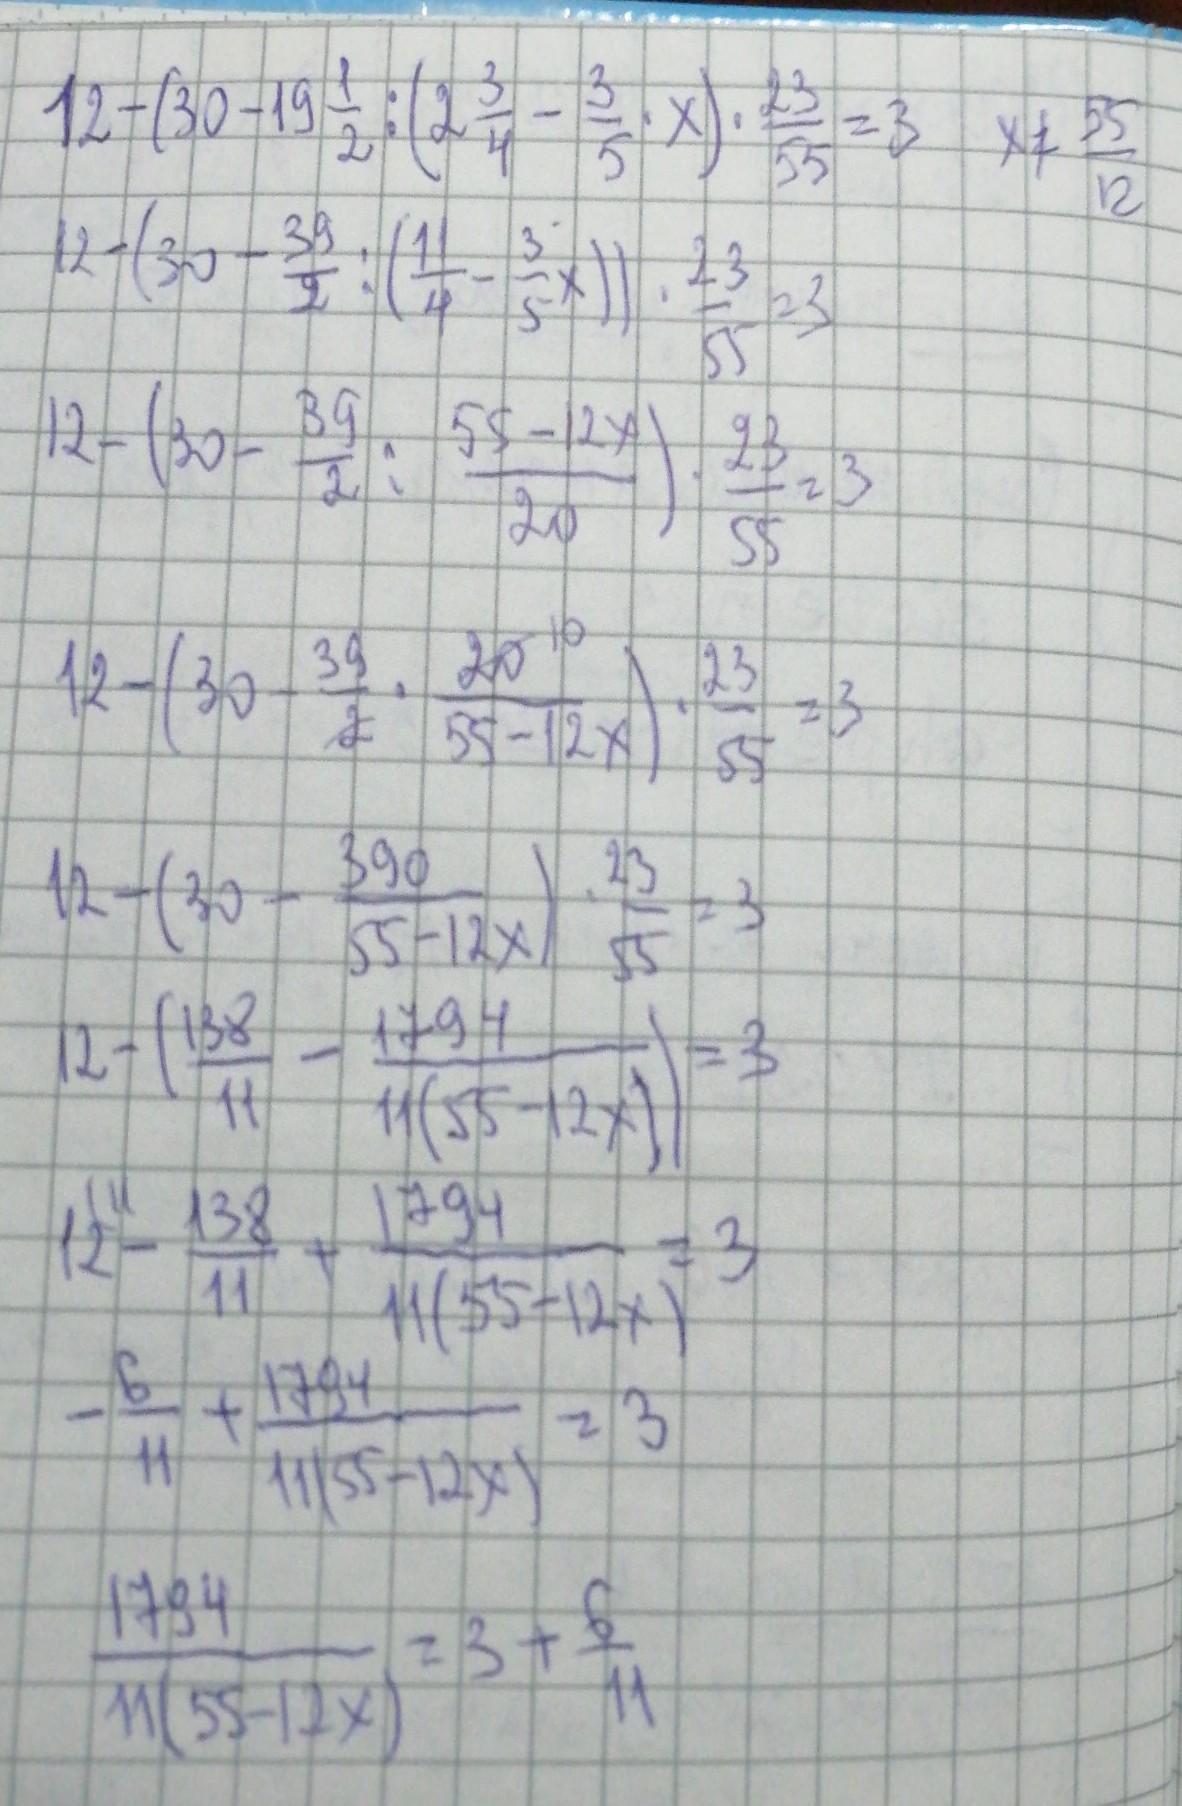 12-(30-19 1/2:(2 3/4 - 3/5 · x) · 23/55 = 3 x≠ 55/12
12-(30 - 39/2:(11/4 - 3/5 x)) · 23/55 = 3
12-(30 - 39/2 : (55-12x)/20) · 23/55 = 3
12-(30 - 39/2 · 20^10/(55-12x)) · 23/55 = 3
12-(30 - 390/(55-12x)) · 23/55 = 3
12-(138/11 - 1794/(11(55-12x))) = 3
12^(11 - 138/11 + 1794/(11(55-12x)) = 3
-6/11 + 1794/(11(55-12x)) = 3
1794/(11(55-12x)) = 3 + 6/11